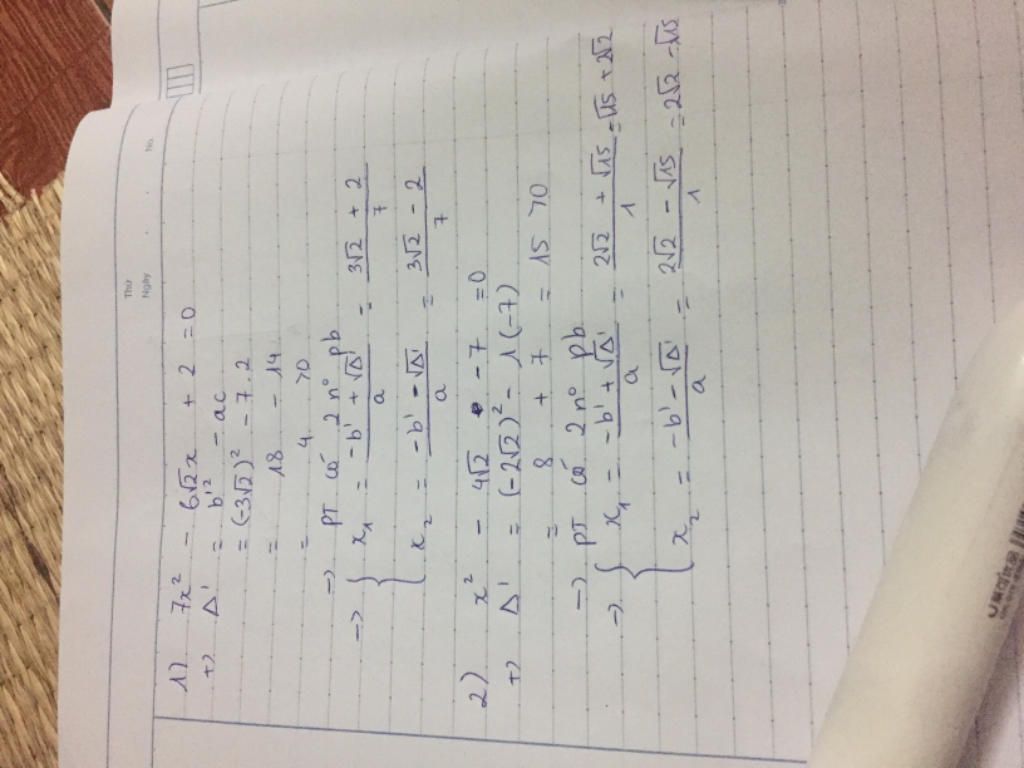 Thứ
Ngày
No.
1) 7x² - 6√2x + 2 = 0
+) Δ' = b'² - ac
= (-3√2)² - 7.2
= 18 - 14
= 4 >0
→ PT có 2 n° pb
→ { x₁ = (-b' + √Δ')/a = (3√2 + 2)/7
x₂ = (-b' - √Δ')/a = (3√2 - 2)/7
2) x² - 4√2 - 7 = 0
+) Δ' = (-2√2)² - 1(-7)
= 8 + 7 = 15 >0
→ PT có 2 n° pb
→ { x₁ = (-b' + √Δ')/a = (2√2 + √15)/1 = √15 + 2√2
x₂ = (-b' - √Δ')/a = (2√2 - √15)/1 = 2√2 - √15